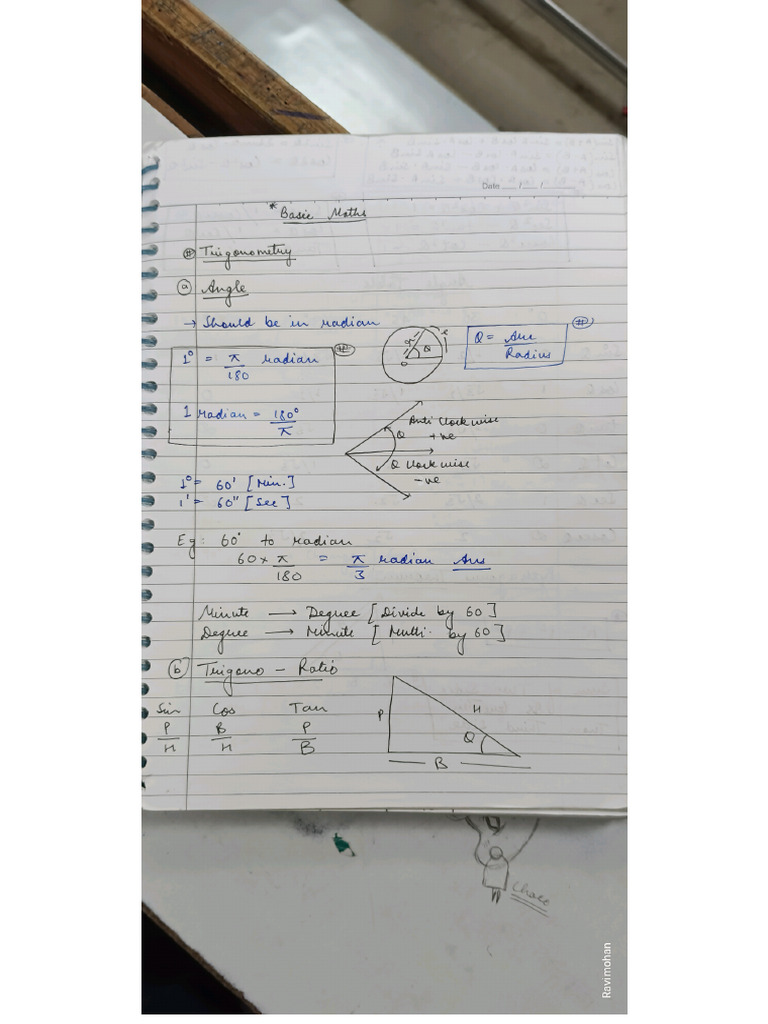 Date __/__/__
* Basic Maths
# Trigonometry
a Angle
→ Should be in radian
1° = π/180 radian
#
1 radian = 180°/π
r Q O
Q = Arc/Radius
#
Anti Clockwise
Q +ve
Q Clockwise
-ve
1° = 60' [Min.]
1' = 60" [Sec]
Eg: 60° to radian
60 × π/180 = π/3 radian Ans
Minute → Degree [Divide by 60]
Degree → Minute [Multi. by 60]
b Trigono - Ratio
Sin Cos Tan
P/H B/H P/B
P H Q
B
Ravimohan